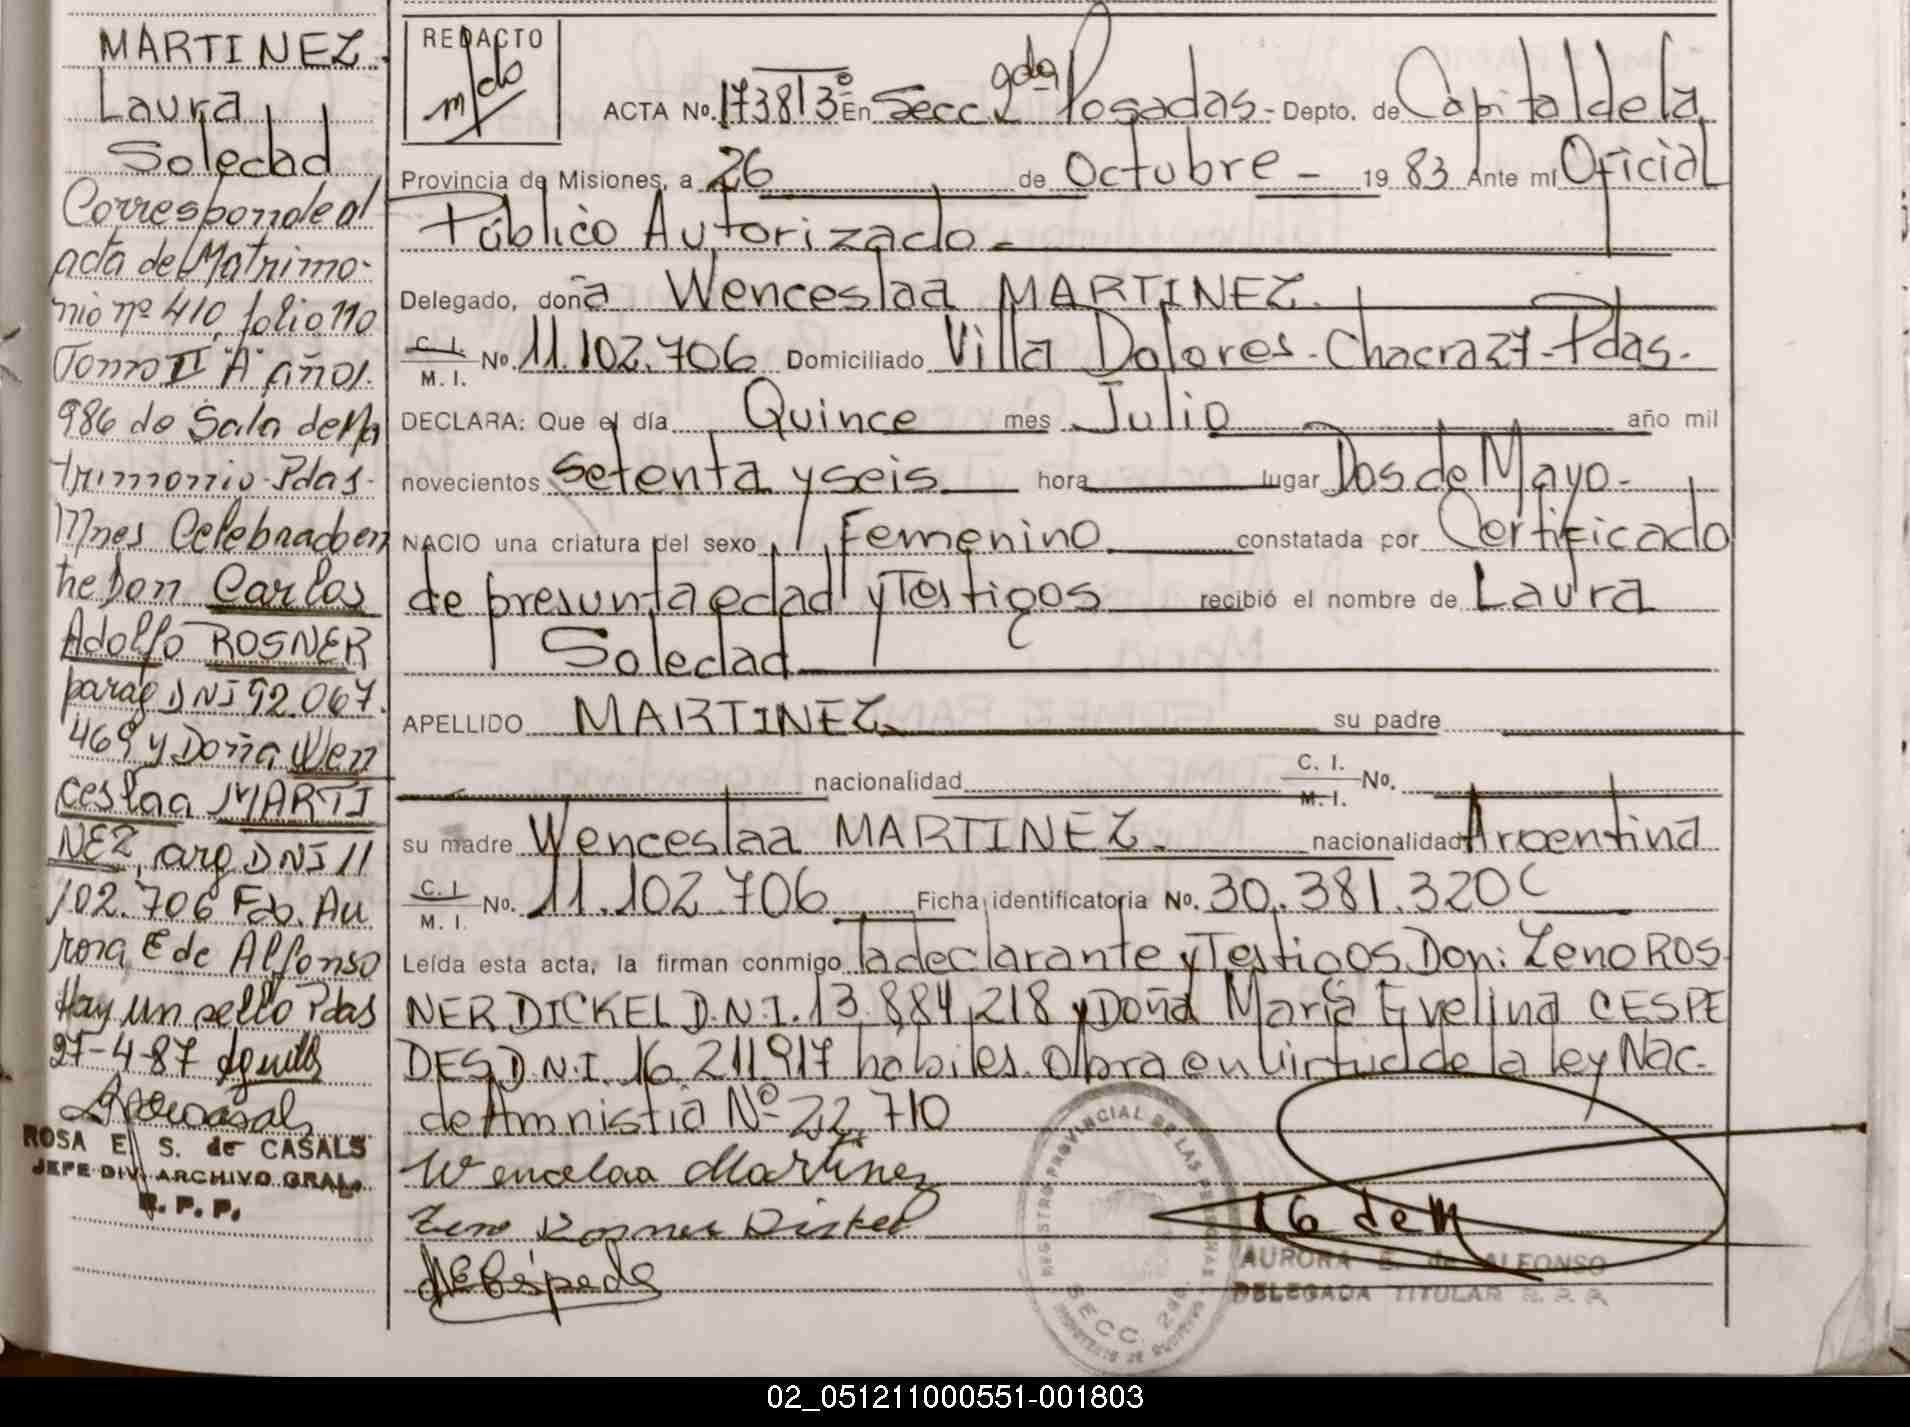 MARTINEZ
Laura
Soledad
Corresponde al
acta de Matrimo-
nio nº 410, folio 110
Tomo II "A" año 1.
986 de Sala de Ma
trimonio-Pdas-
Mnes Celebrado en
tre Don Carlos
Adolfo ROSNER
parag DNI 92.067.
469 y Doña Wen
ceslaa MARTI
NEZ, arg. DNI 11
102.706 Fdo. Au
rora E de Alfonso
Hay un sello Pdas
27-4-87
ROSA E. S. de CASALS
JEFE DIV. ARCHIVO GRAL.
R. P. P.
REDACTO
ACTA No. 17381 3º En Secc. 2da Posadas - Depto. de Capital de la
Provincia de Misiones, a 26 de Octubre - 19 83 Ante mí Oficial
Público Autorizado -
Delegado, doña Wenceslaa MARTINEZ.
C. I.
M. I. No. 11.102.706 Domiciliado Villa Dolores - Chacra 27 - Pdas.
DECLARA: Que el día Quince mes Julio año mil
novecientos setenta y seis hora lugar Dos de Mayo -
NACIO una criatura del sexo Femenino constatada por Certificado
de presunta edad y Testigos recibió el nombre de Laura
Soledad
APELLIDO MARTINEZ su padre
nacionalidad C. I.
M. I. No.
su madre Wenceslaa MARTINEZ. nacionalidad Argentina
C. I.
M. I. No. 11.102.706 Ficha identificatoria No. 30.381.320 C
Leída esta acta, la firman conmigo la declarante y Testigos Don: Zeno ROS
NER DICKEL D.N.I. 13.884.218 y Doña María Evelina CESPE
DES D.N.I. 16.211.917 habiles. Obra en Virtud de la ley Nac.
de Amnistia Nº 22.710
Wencelaa Martinez
Zeno Rosner Dickel
REGISTRO PROVINCIAL DE LAS PERSONAS
SECC. 2da.
AURORA E. de ALFONSO
DELEGADA TITULAR R. P. P.
02_051211000551-001803